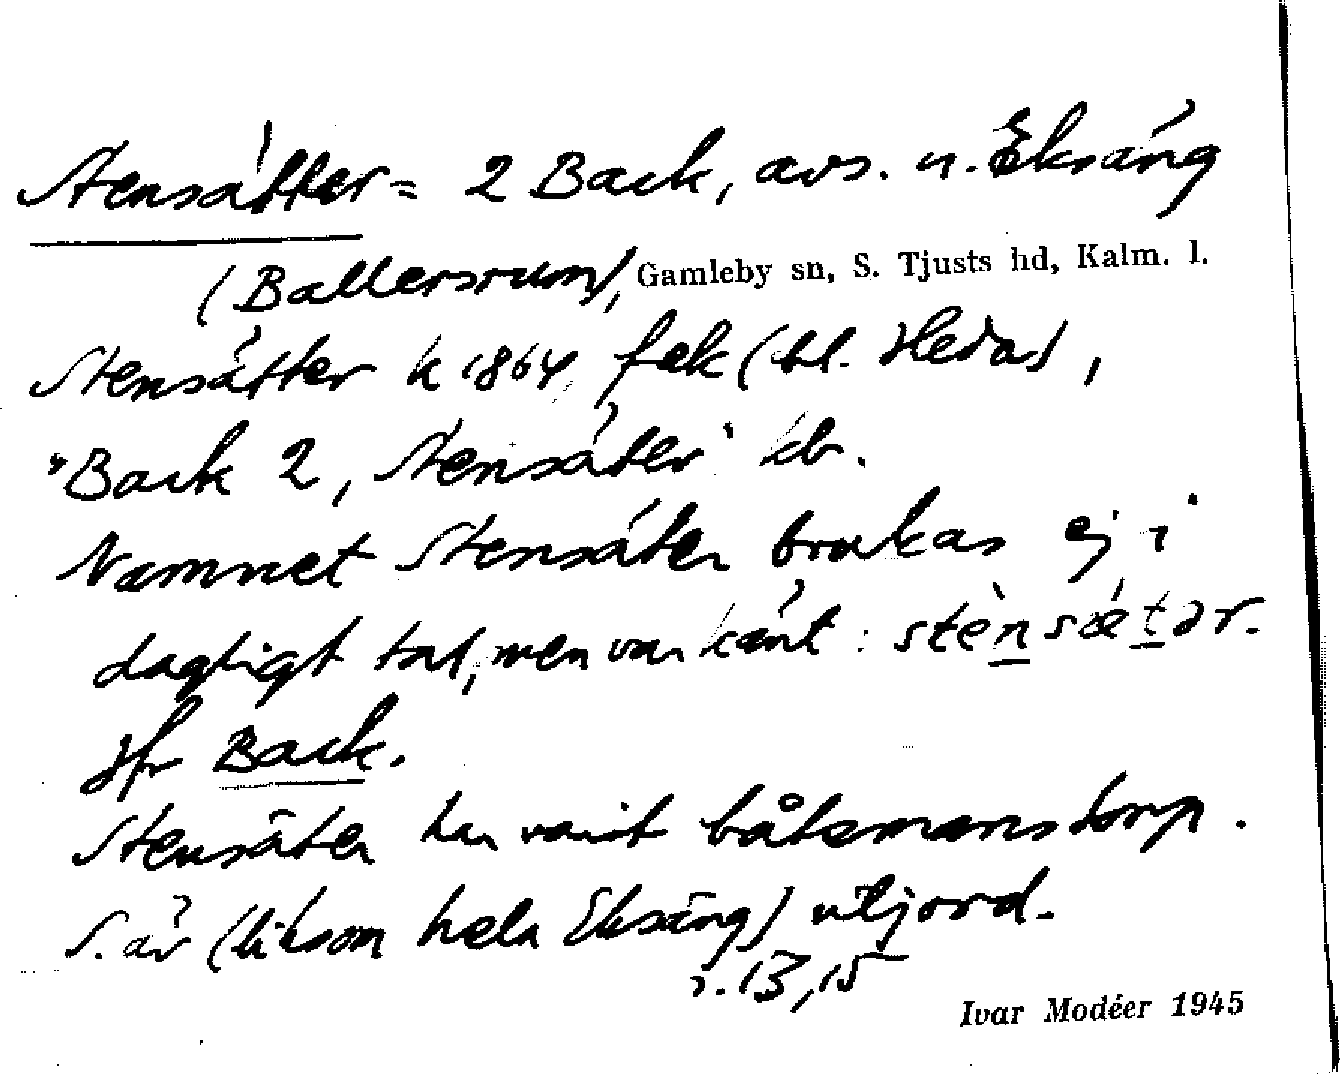 Stensätter = 2 Back, avs. u. Eksäng
(Ballersrum), Gamleby sn, S. Tjusts hd, Kalm. l.
Stensätter k 1864, fek (bl. Heda),
"Back 2, Stensäter" kb.
Namnet Stensäter brukas ej i
dagligt tal, men var känt: stènsǽtər.
Jfr Back.
Stensäter har varit båtsmanstorp.
S. är (liksom hela Eksäng) utjord.
s. 13, 15
Ivar Modéer 1945